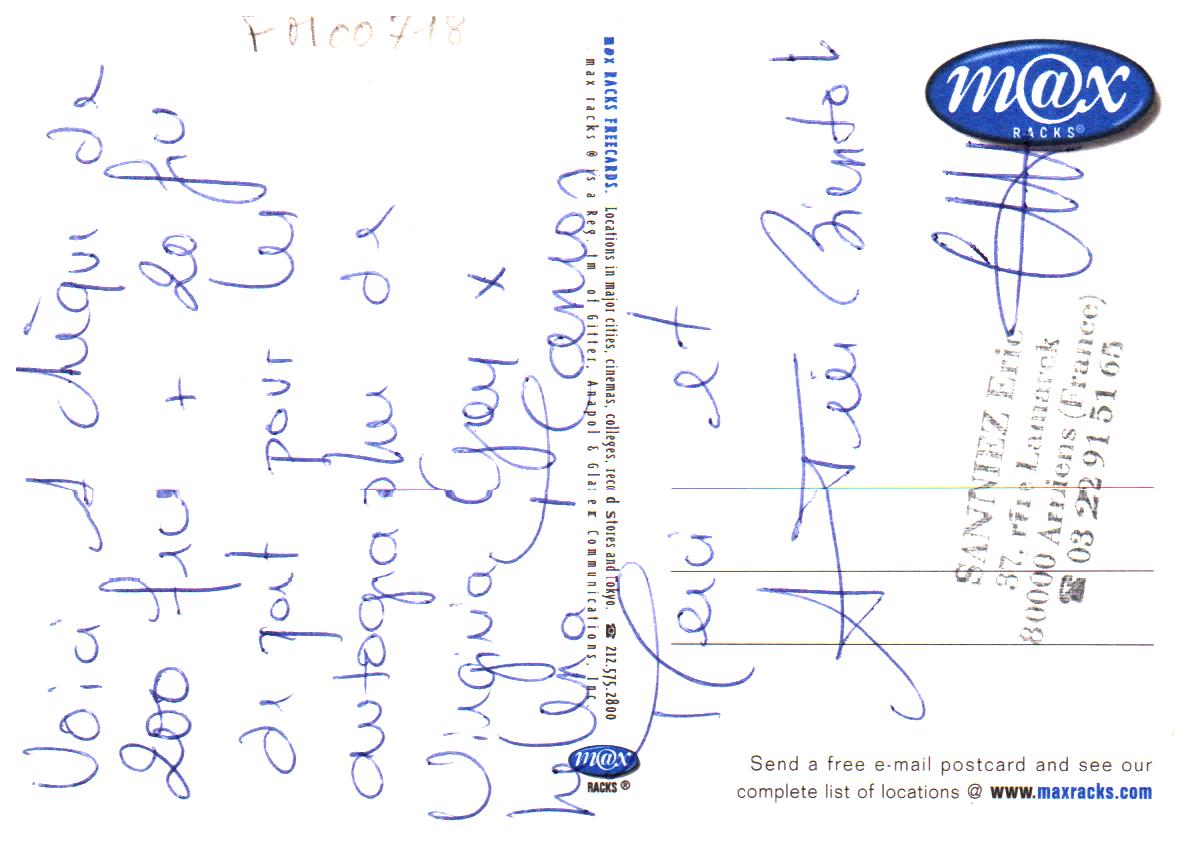 Voici 1 chèque de
200 fr + 20 fr
de port pour
autogra de
Virginia Gray x
Merci et
A Bientot
max RACKS FREECARDS. Locations in major cities, cinemas, colleges, record stores and Tokyo. ☎ 212.575.2800
max racks ® is a Reg. tm of Gitter, Anapol & Glazer Communications, Inc.
m@x
RACKS®
m@x
RACKS ®
SANNIEZ Eric
37, rue Lamarck
80000 Amiens (France)
☎ 03 22 91 51 65
Send a free e-mail postcard and see our
complete list of locations @ www.maxracks.com